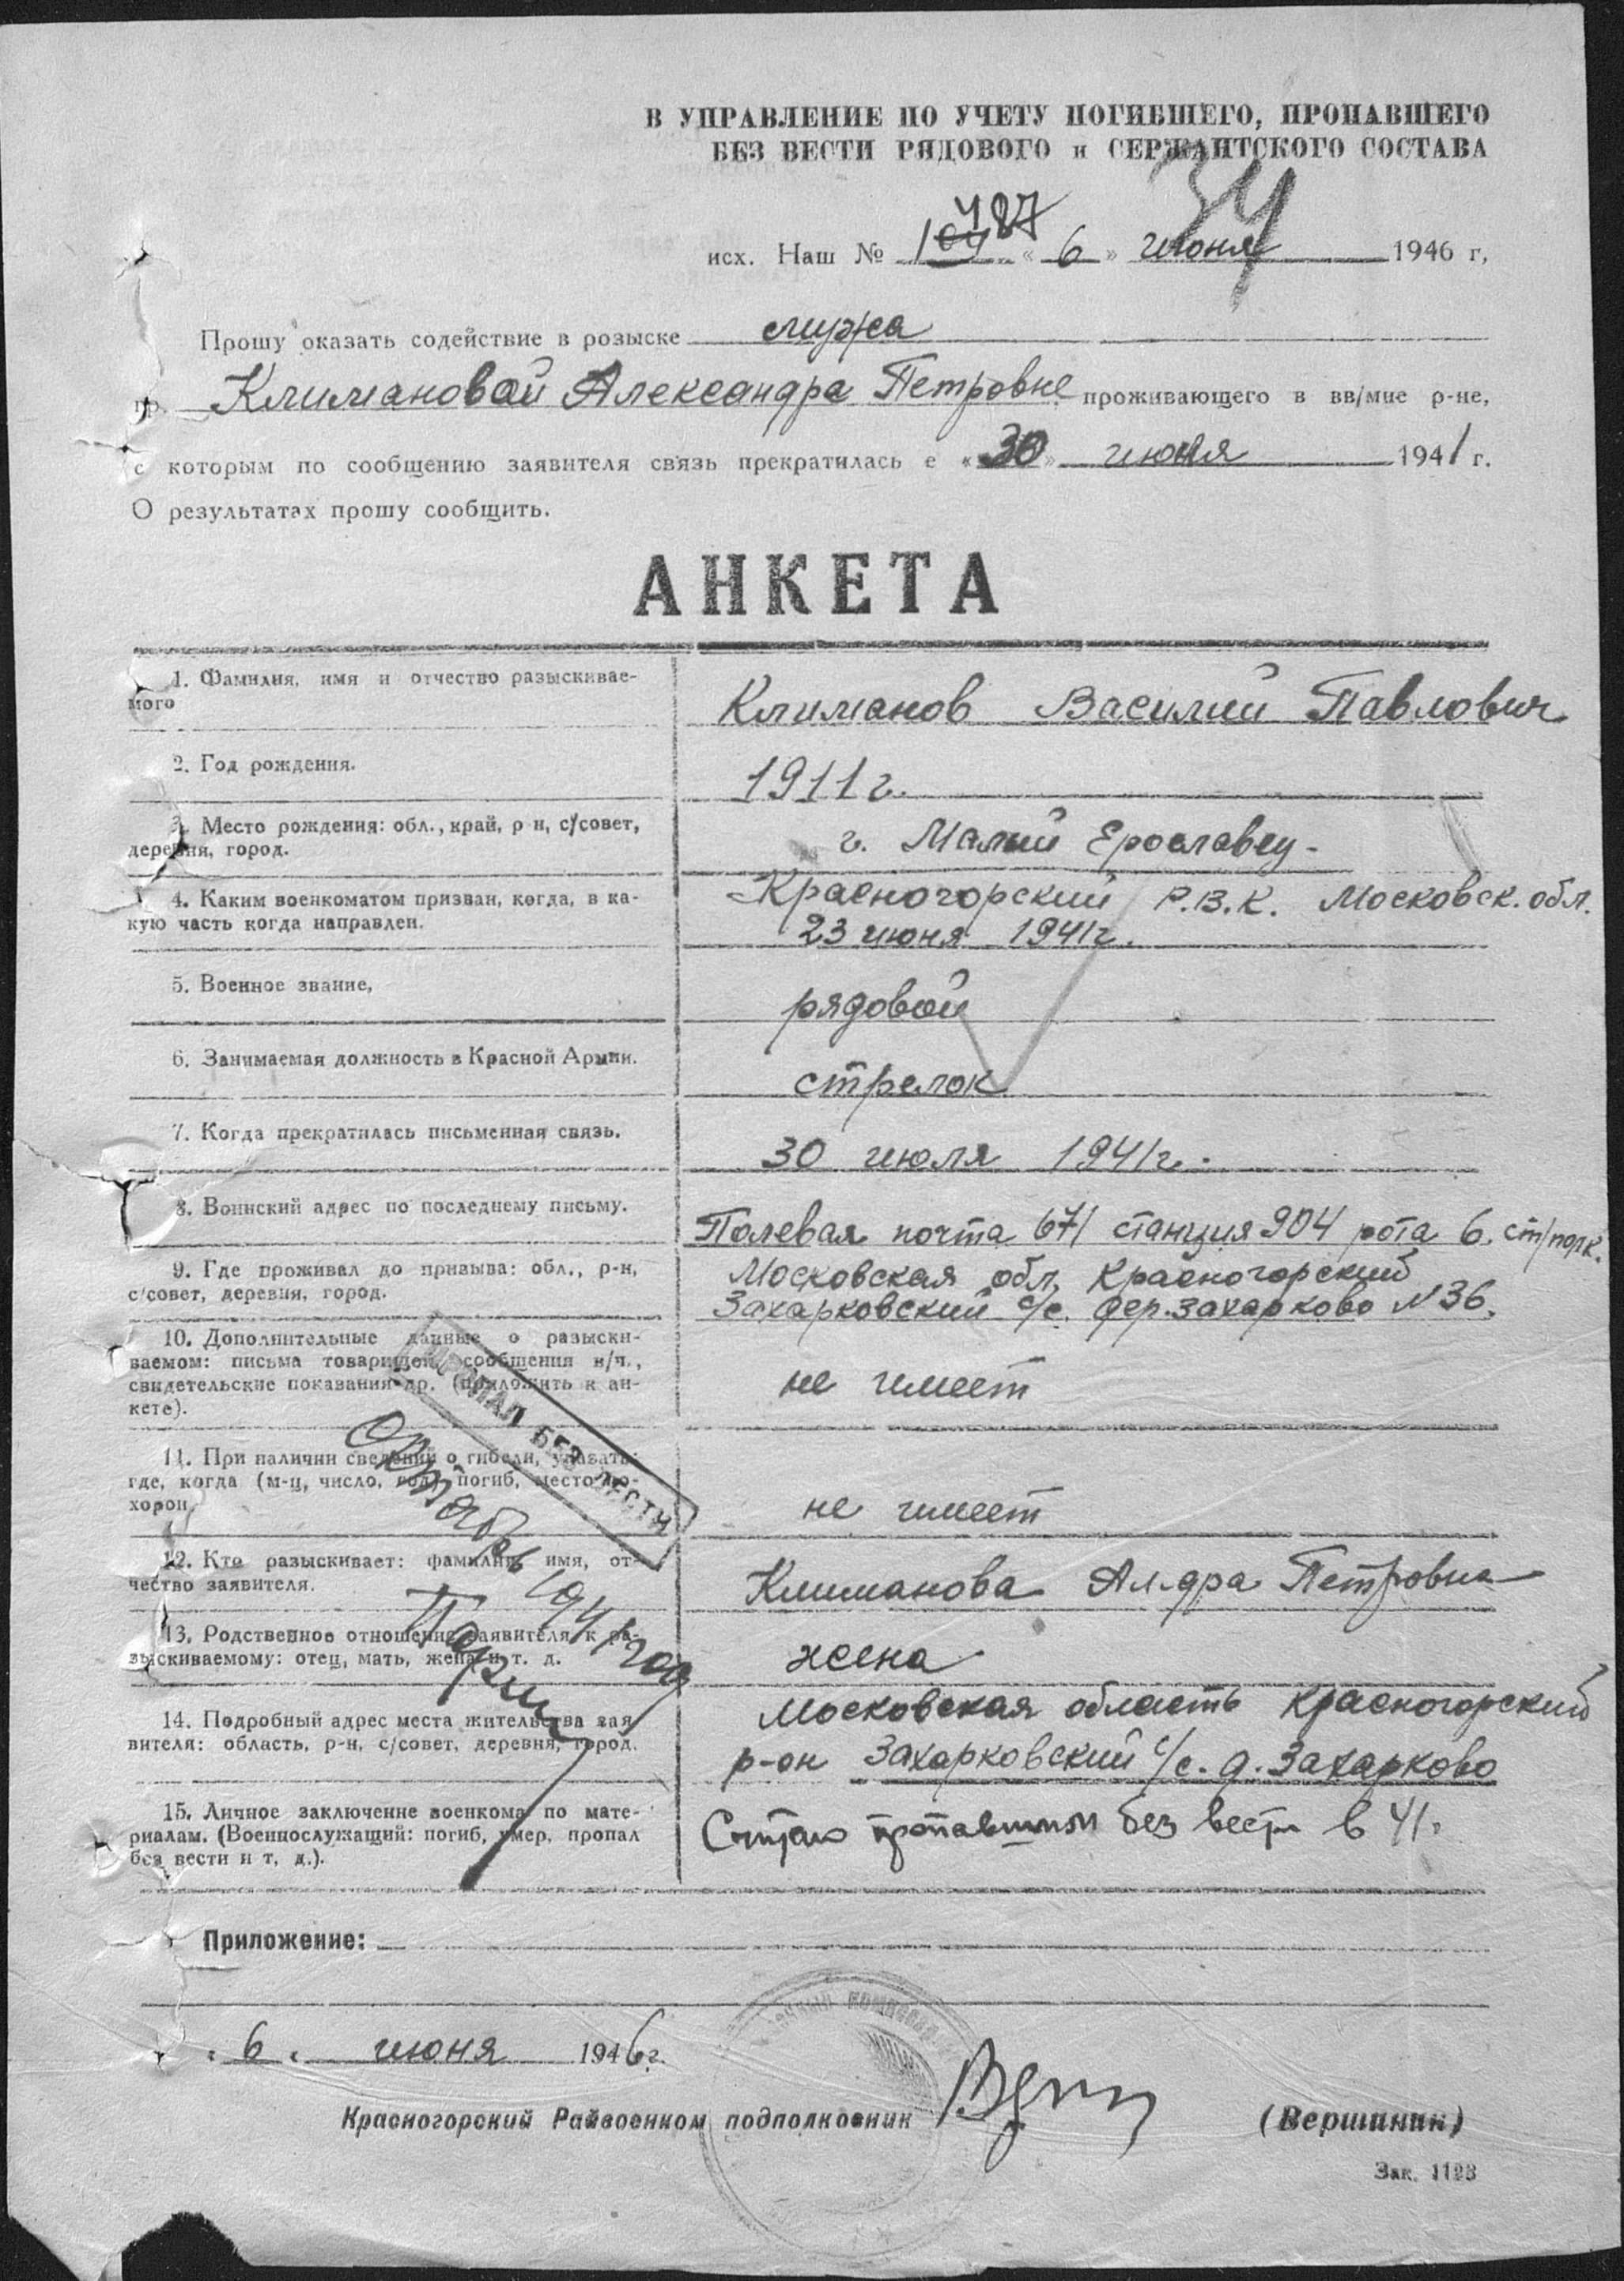 В УПРАВЛЕНИЕ ПО УЧЕТУ ПОГИБШЕГО, ПРОПАВШЕГО
БЕЗ ВЕСТИ РЯДОВОГО и СЕРЖАНТСКОГО СОСТАВА
34
487
исх. Наш № «6» июня 1946 г,
Прошу оказать содействие в розыске мужа
гр. Климановой Александра Петровне проживающего в вв/мне р-не,
с которым по сообщению заявителя связь прекратилась с «30» июня 1941 г.
О результатах прошу сообщить.
АНКЕТА
1. Фамилия, имя и отчество разыскивае-
мого
Климанов Василий Павлович
2. Год рождения.
1911 г.
3. Место рождения: обл., край, р н, с/совет,
деревня, город.
г. Малый Ерославец-
4. Каким военкоматом призван, когда, в ка-
кую часть когда направлен.
Красногорский Р.В.К. Московск. обл.
23 июня 1941г.
5. Военное звание,
рядовой
6. Занимаемая должность в Красной Армии.
стрелок
7. Когда прекратилась письменная связь.
30 июля 1941г.
8. Воинский адрес по последнему письму.
Полевая почта 671 станция 904 рота 6. ст/полк.
9. Где проживал до призыва: обл., р-н,
с/совет, деревня, город.
Московская обл, Красногорский
Захарковский с/с. дер. Захарково N 36.
10. Дополнительные данные о разыски-
ваемом: письма товарищей, сообщения в/ч.,
свидетельские показания др. (приложить к ан-
кете).
не имеет
ПРОПАЛ БЕЗ ВЕСТИ
октябрь 1941 год
11. При наличии сведений о гибели, указать:
где, когда (м-ц, число, год) погиб, место по-
хорон.
не имеет
12. Кто разыскивает: фамилия, имя, от-
чество заявителя.
Климанова Ал-дра Петровна
13. Родственное отношение заявителя к ра-
зыскиваемому: отец, мать, жена и т. д.
жена
14. Подробный адрес места жительства зая
вителя: область, р-н, с/совет, деревня, город.
Московская область Красногорский
р-он Захарковский с/с. д. Захарково
15. Личное заключение военкома по мате-
риалам. (Военнослужащий: погиб, умер, пропал
без вести и т, д.).
Считаю пропавшим без вести в 41.
Приложение:
«6» июня 1946г.
Красногорский Райвоенком подполковник (Вершинин)
Зак. 1193